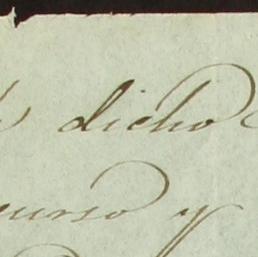 dicho
curso y